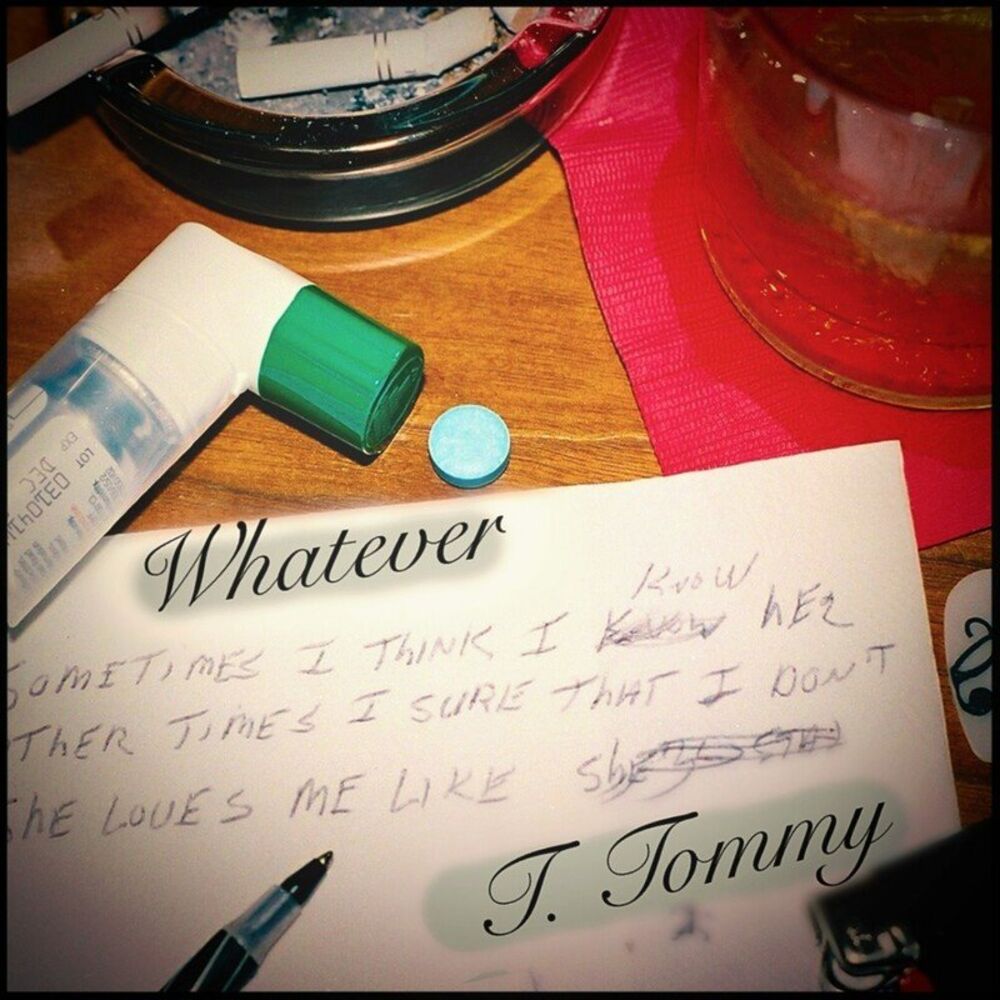 LOT
EXP
DEC
Whatever
Know
SOMETIMES I THINK I Know hER
OTHER TIMES I SURE THAT I DON'T
ShE LOVES ME LIKE She
T. Tommy